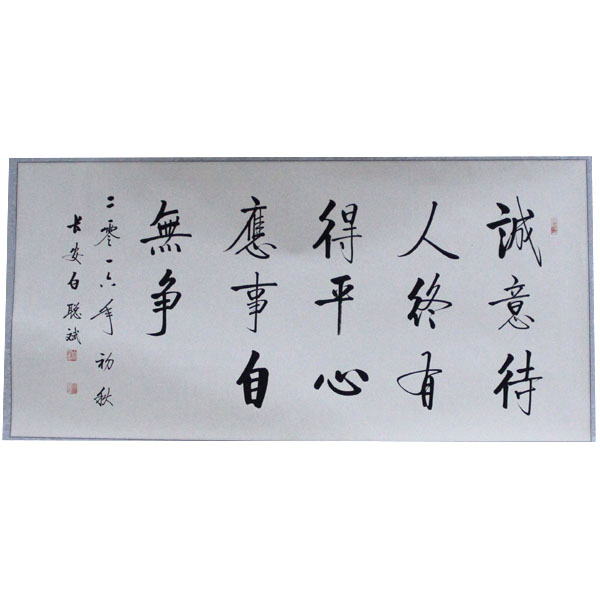 誠意待
人终有
得平心
應事自
無争
二零一六年初秋
长安白聪斌